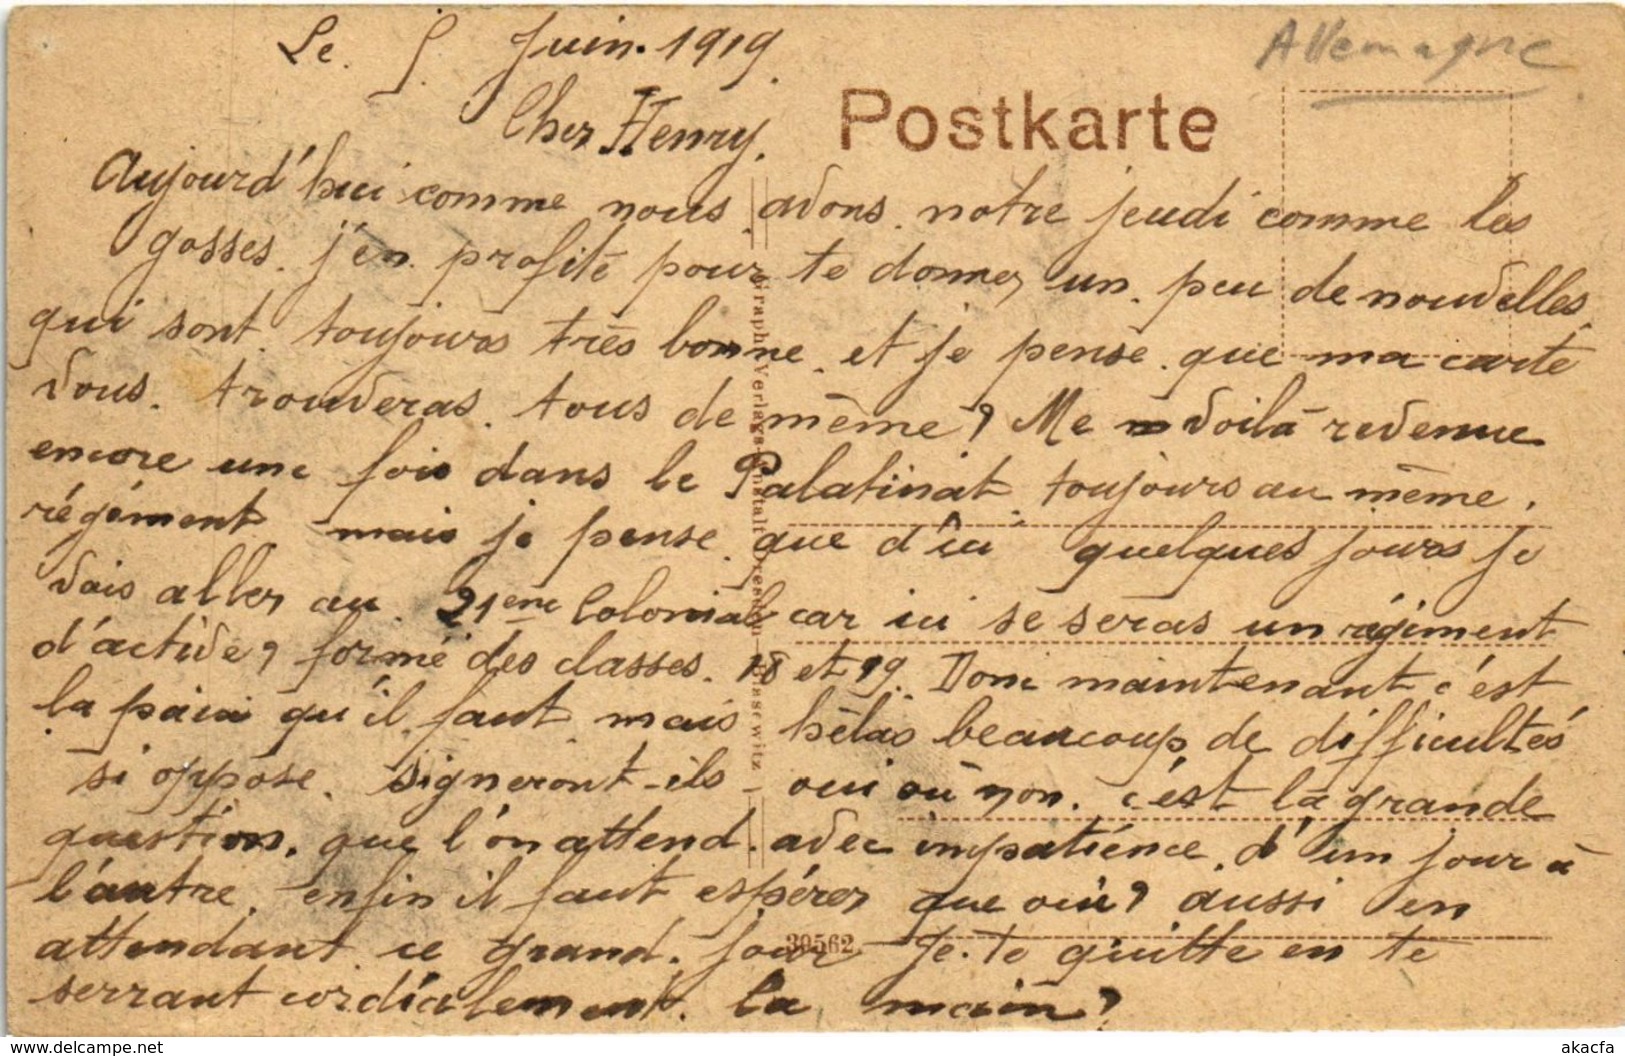 Allemagne
Le. 5. Juin. 1919.
Postkarte
Cher Henry.
Aujourd'hui comme nous avons notre jeudi comme les
gosses. j'en profite pour te donner un peu de nouvelles.
qui sont toujours très bonne. et je pense que ma carte
vous. trouveras. tous de même? Me voilà revenue
encore une fois dans le Palatinat toujours au même.
régiment mais je pense que d'ici quelques jours je
vais aller au 21eme Colonial car ici se seras un régiment
d'active, formé des classes. 18 et 19. Donc maintenant c'est
la paix qu'il faut mais hélas beaucoup de difficultés
si oppose. signeront-ils - oui où non. c'est la grande
question. que l'on attend. avec impatience. d'un jour à
l'autre. enfin il faut espérer que oui? aussi en
attendant ce grand. jour Je te quitte en te
serrant cordialement. la main?
30562
akacfa